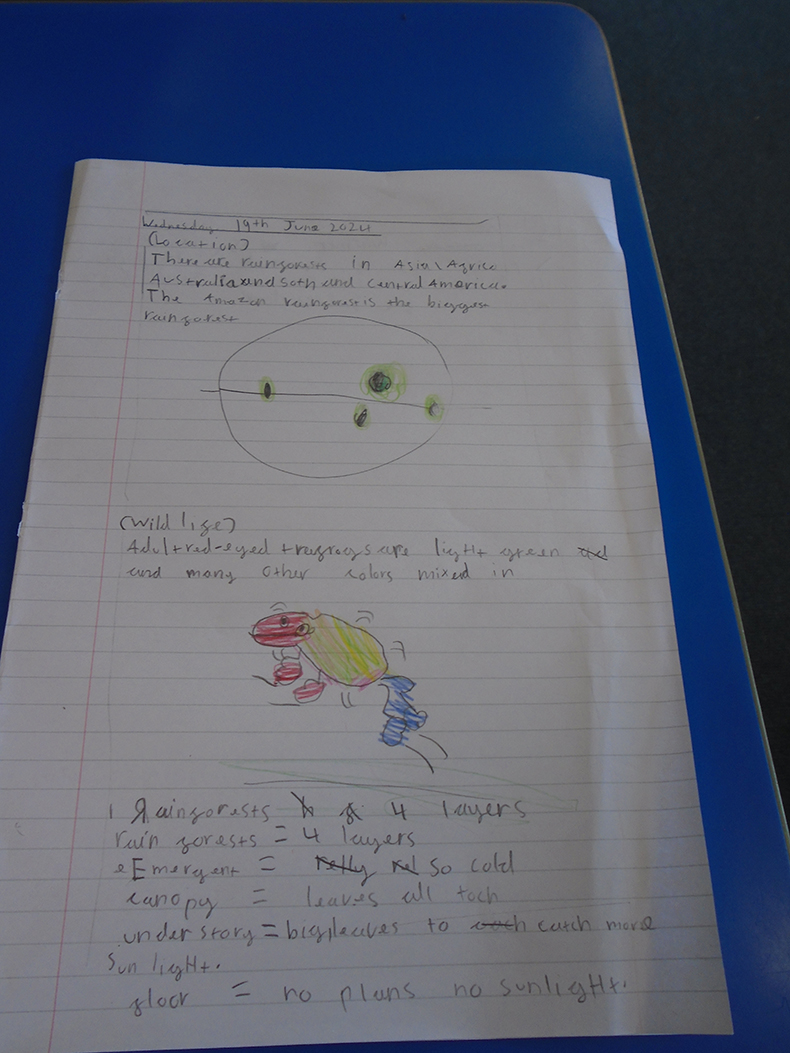 Wednesday 19th June 2024
(Location)
There are rainforests in Asia\Africa
Australia and Soth and central America.
The Amazon rainforest is the biggest
rainforest
(Wild life)
Adult red-eyed treefrogs are light green
and many other colors mixed in
Rainforests 4 layers
rain forests = 4 layers
Emergent = so cold
canopy = leaves all toch
under story = big leaves to catch more
Sun light.
floor = no plans no sunlight.